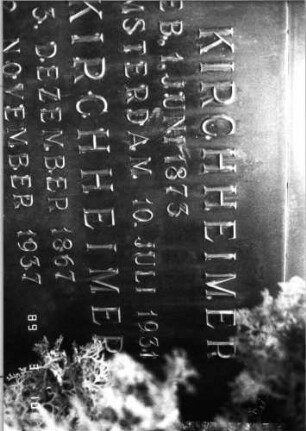 KIRCHHEIMER
EB. 1. JUNI 1873
MSTERDAM. 10. JULI 1931
KIRCHHEIMER
3. DEZEMBER 1867
NOVEMBER 1937